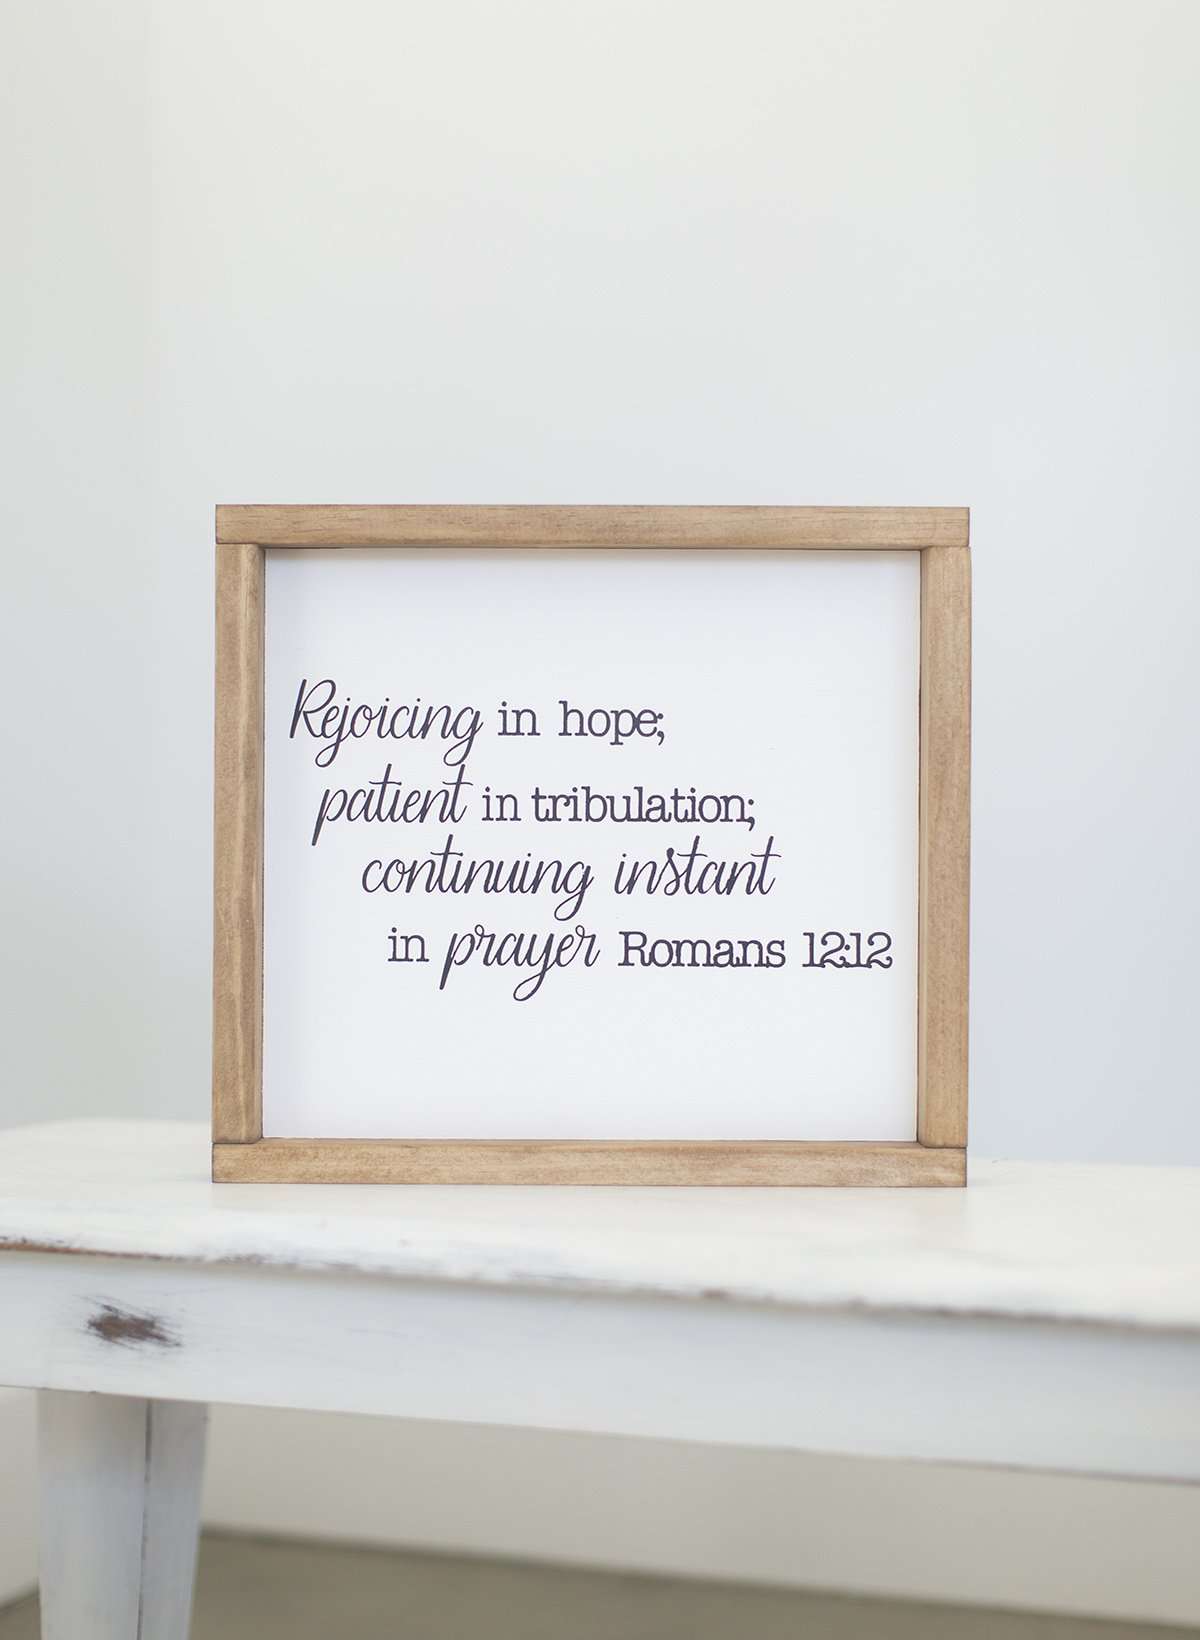 Rejoicing in hope;
patient in tribulation;
continuing instant
in prayer Romans 12:12